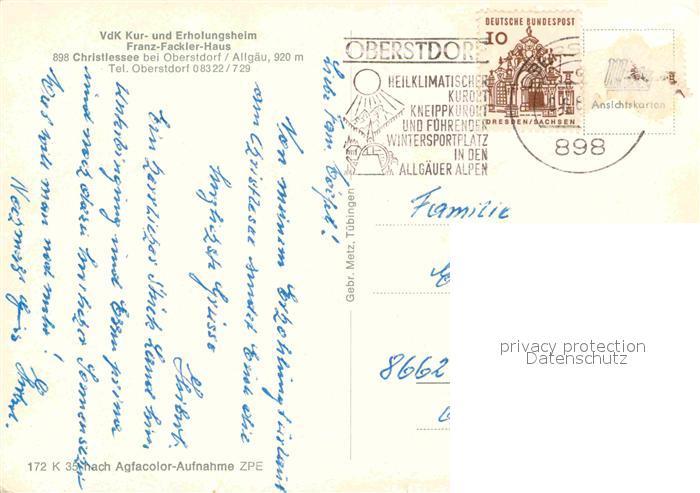 VdK Kur- und Erholungsheim
Franz-Fackler-Haus
898 Christlessee bei Oberstdorf / Allgäu, 920 m
Tel. Oberstdorf 08322 / 729
Von meinem Erholungsurlaub
am Christlesee sendet Euch die
herzlichsten Grüsse
Ein herrliches Stück Land hier,
Unterbringung und Essen prima
und noch dazu herrlicher Sonnenschein
Was will man noch mehr!
Nochmals Gruß
172 K 35 nach Agfacolor-Aufnahme ZPE
Gebr. Metz, Tübingen
OBERSTDORF
HEILKLIMATISCHER
KURORT
KNEIPPKURORT
UND FÜHRENDER
WINTERSPORTPLATZ
IN DEN
ALLGÄUER ALPEN
DEUTSCHE BUNDESPOST
10
DRESDEN/SACHSEN
898
Metz
Ansichtskarten
Familie
8662
privacy protection
Datenschutz